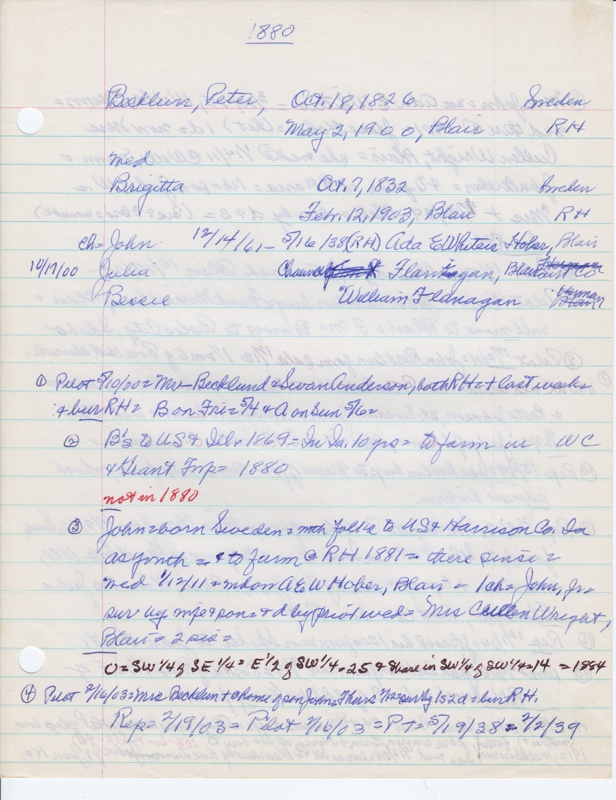 1880
Backlun, Peter, Oct. 18, 1826 Sweden
May 2, 1900, Blair RH
med
Brigitta Oct. 7, 1832 Sweden
Febr. 12, 1903, Blair RH
ch = John 12/14/61 - 5/16/38 (RH) Ada E Hober, Blair
10/17/00 Julia Flanigan, Blair
Bessie William Flanagan Herman
① Pilot 5/10/00 = Mr Backlund & Swan Anderson, both RH = + last weeks
& bur RH = B on Fri = 5/4 & A on Sun 5/6 =
② B's to US & Ill. 1869 = In Ia. 10 yrs = to farm in WC
& Grant Twp = 1880
not in 1880
③ John = born Sweden = with folks to US & Harrison Co. Ia
as youth = & to farm @ RH 1881 = there since =
med 1/12/11 = mdom A E W Hober, Blair = 1 ch = John, Jr =
surv by wife & son = & d by prior wed = Mrs Cullen Wright,
Blair = 2 sis =
O = SW 1/4 of SE 1/4 = E 1/2 of SW 1/4 = 25 & share in SW 1/4 of SW 1/4 = 14 = 1884
④ Pilot 2/16/03 = Mrs Backlun + @ home of son John = Thurs 2/12 = surv by 1 s 2 d = bur RH.
Rep = 2/19/03 = Pilot 2/16/03 = PT = 5/19/38 = 2/2/39